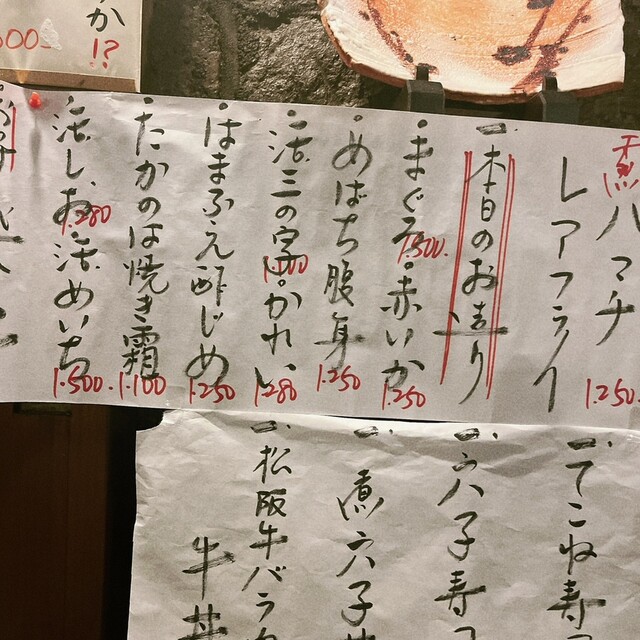 か!?
燻ハマチ
レアフライ
1.250
本日のお造り
・まぐろ・赤いか
1.500.
1.250
・めばち腹身
1.250
・活三の字・かれい
1.100
1.280
・はまふえ酢じめ
1.250
・たかのは焼き霜
1.100
・活しお・活めいち
1.280
1.500.
てこね寿
穴子寿
煮穴子
松阪牛バラ
牛丼